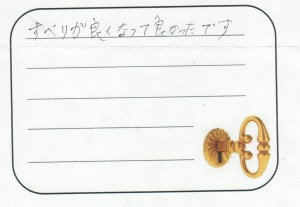 すべりが良くなって良かったです